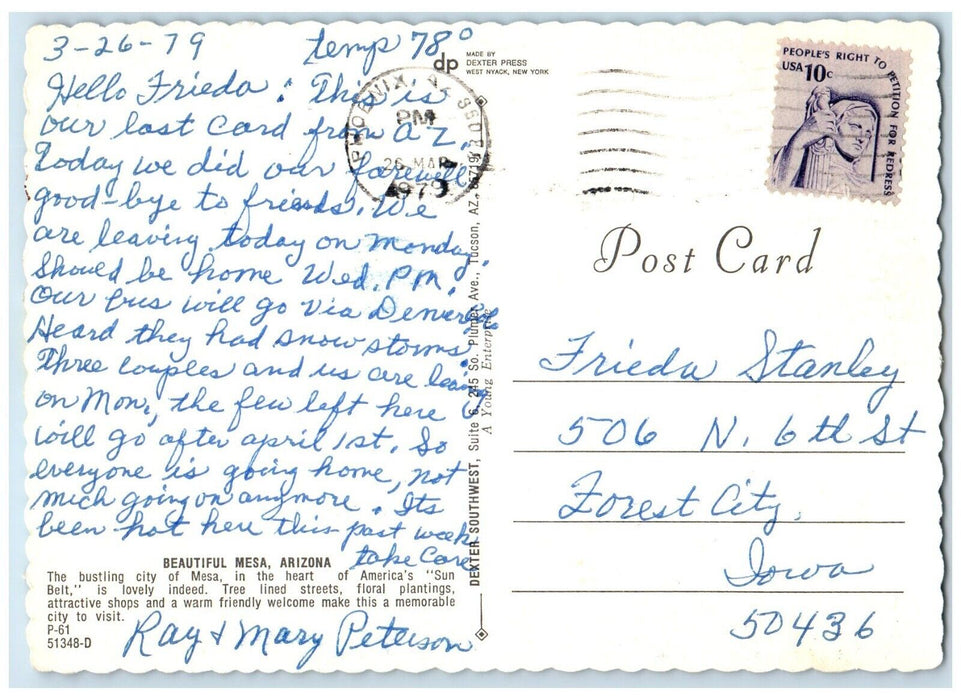 3-26-79 temp 78°
Hello Frieda: This is
our last Card from AZ.
Today we did our farewell
good-bye to friends. We
are leaving today on Monday.
Should be home Wed. P.M.
Our bus will go Via Denver
Heard they had snow storms.
Three couples and us are
on Mon, the few left here
will go after april 1st. So
everyone is going home, not
much going on anymore. Its
been hot here this past week
take Care
BEAUTIFUL MESA, ARIZONA
The bustling city of Mesa, in the heart of America's "Sun
Belt," is lovely indeed. Tree lined streets, floral plantings,
attractive shops and a warm friendly welcome make this a memorable
city to visit.
P-61
51348-D
Ray & Mary Peterson
dp MADE BY
DEXTER PRESS
WEST NYACK, NEW YORK
PHOENIX, AZ 850
PM
26 MAR
1979
DEXTER SOUTHWEST, Suite 6, 245 So. Plumer Ave., Tucson, AZ. 85719
A Young Enterprise
PEOPLE'S RIGHT TO PETITION FOR REDRESS
USA 10c
Post Card
Frieda Stanley
506 N. 6th St
Forest City,
Iowa
50436